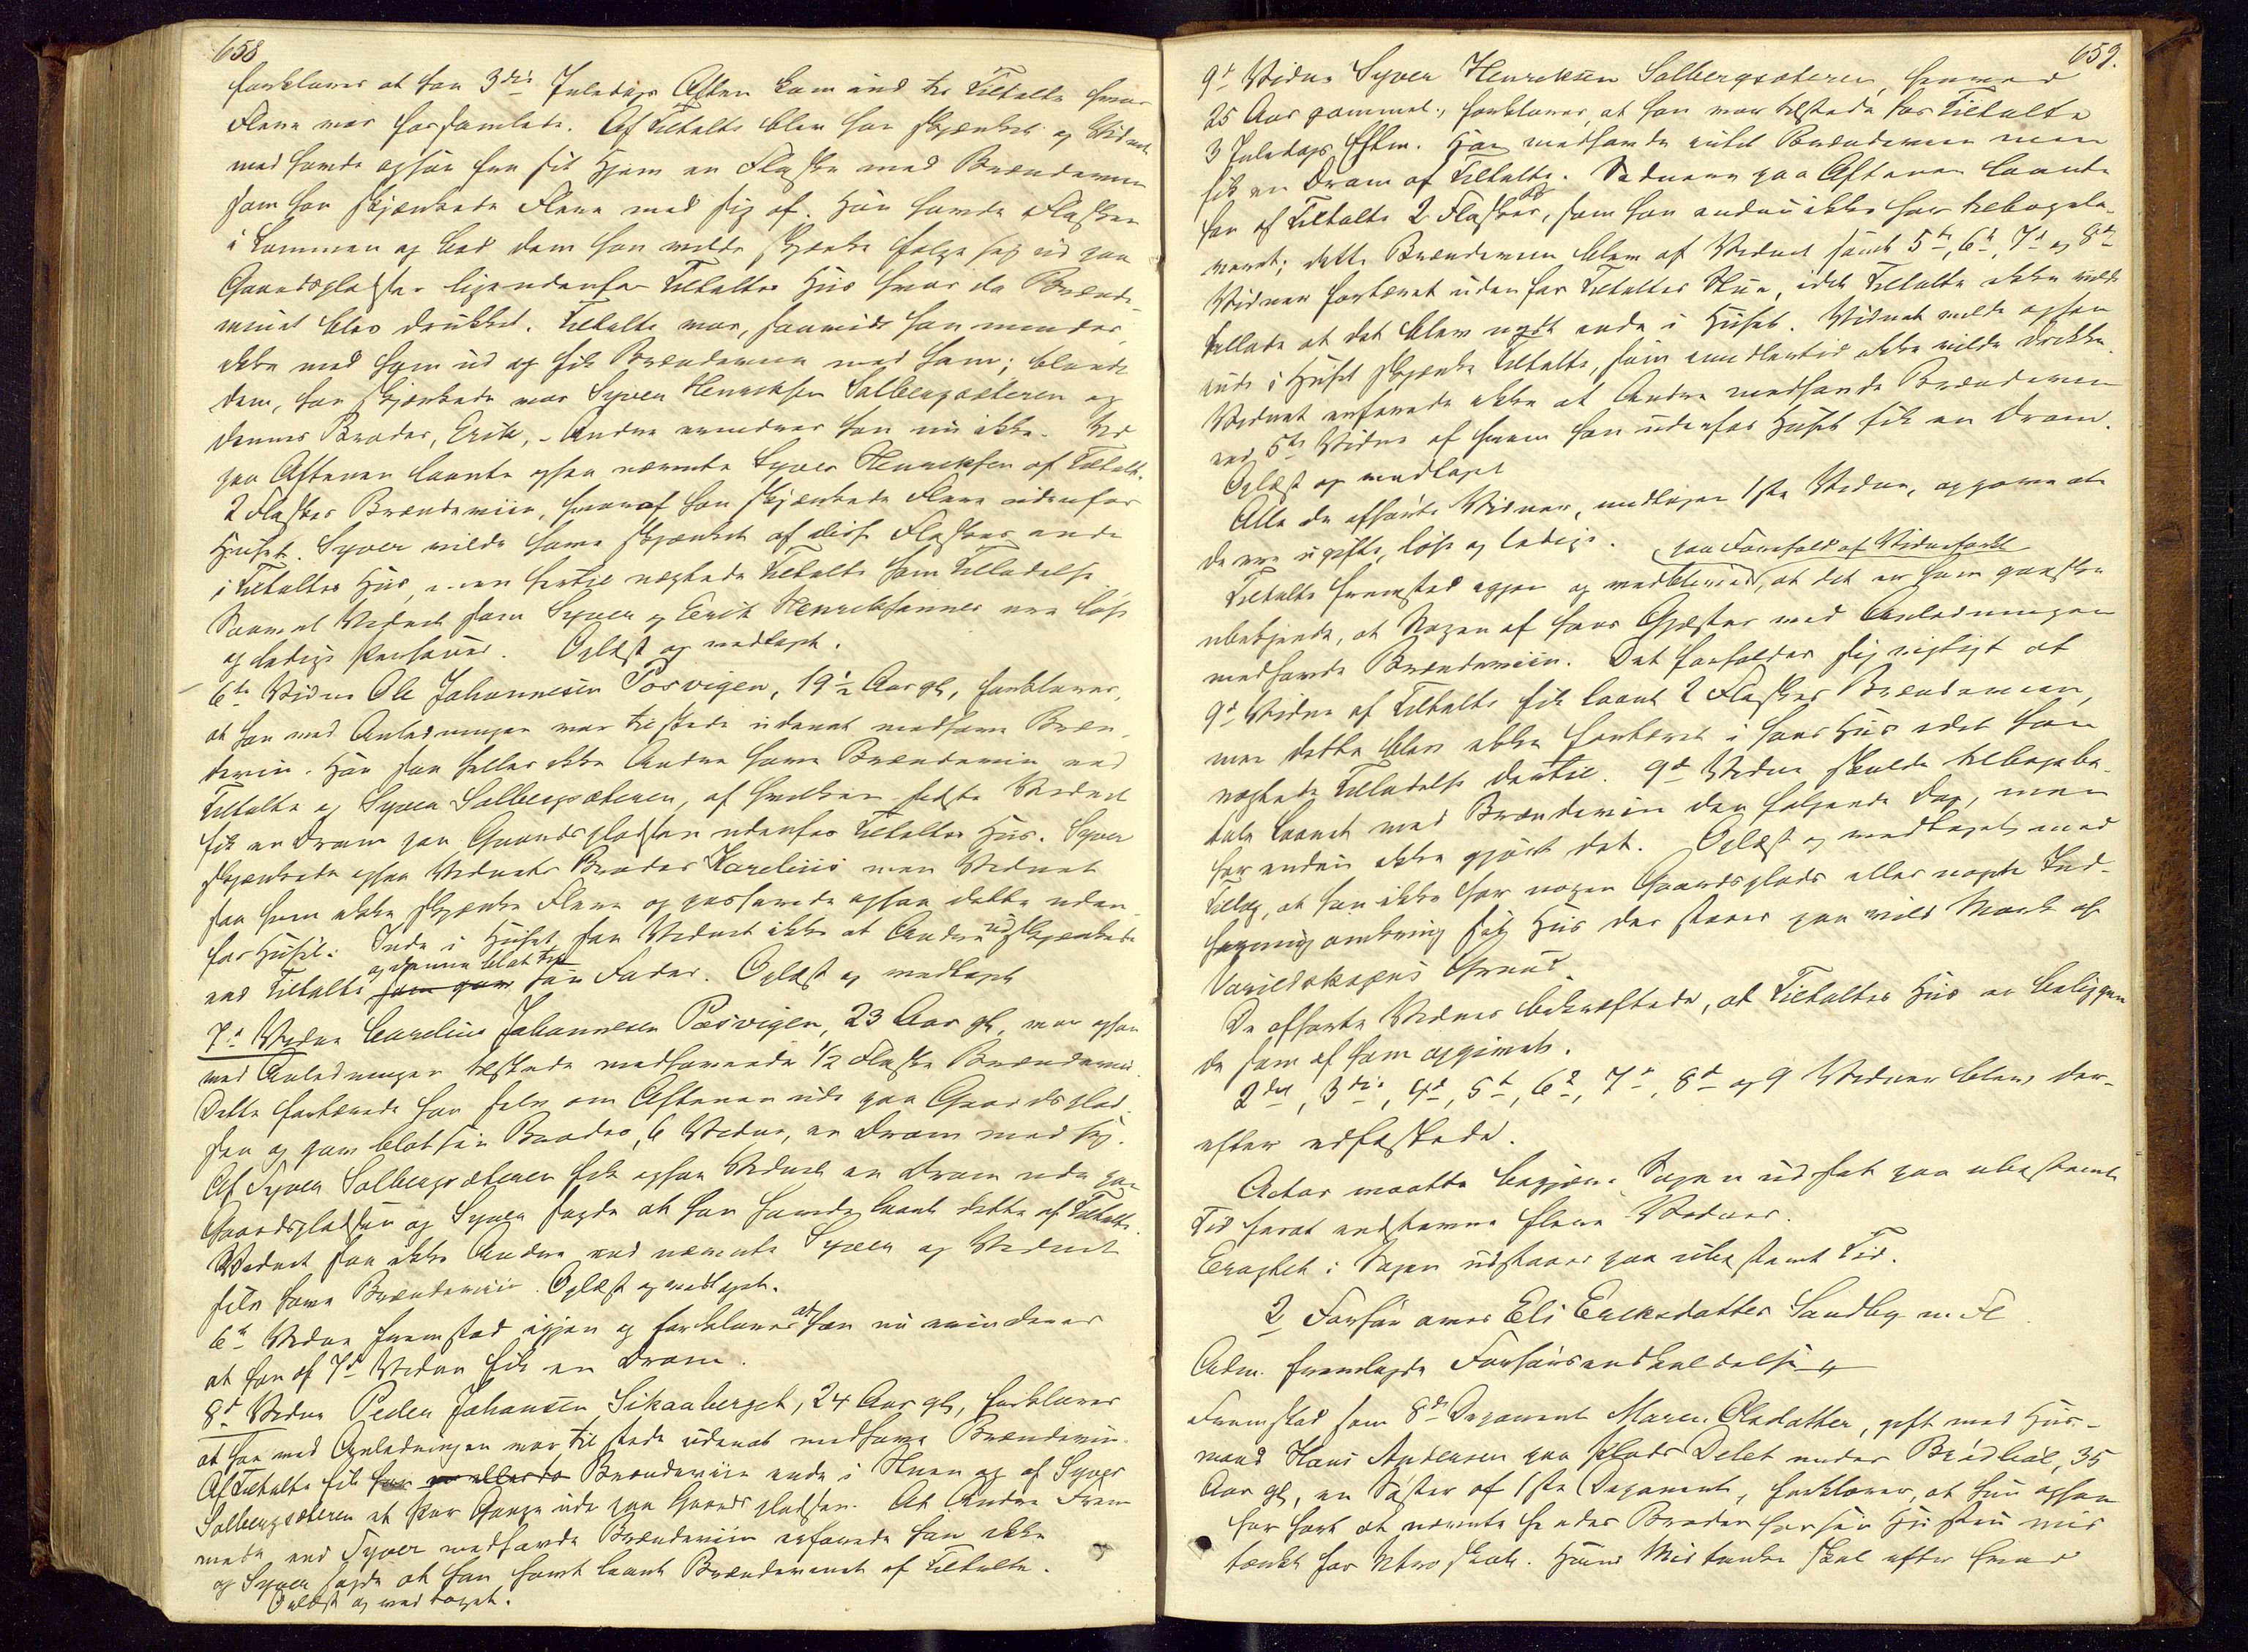 658
forklarer at han 3die Juledags Aften kom ind til Tiltalte hvor
Flere var forsamlede. Af Tiltalte blev han skjænket og Vidnet
medhavde ogsaa fra sit Hjem en Flaske med Brændeviin
som han skjænkede Flere med sig af. Han havde Flasken
i Lommen og bad dem han vilde skjænke følge sig ud paa
Gaardspladsen ligeudenfor Tiltaltes Huus hvor da Brænde-
vinet blev drukket. Tiltalte var, saavidt han mindes,
ikke med ham ud og fik Brændeviin med ham; blandt
dem, han skjænkede var Syver Henriksen Solbergsæteren og
dennes Broder, Erik, – Andre erindrer han nu ikke. Ud
paa Aftenen laante ogsaa nævnte Syver Henriksen af Tiltalte
2 Flasker Brændeviin, hvoraf han skjænkede Flere udenfor
Huset. Syver vilde have skjænket af disse Flasker inde
i Tiltaltes Huus, men hertil nægtede Tiltalte ham Tilladelse.
Saavel Vidnet som Syver og Erik Henriksønner ere løse
og ledige Personer. Oplæst og vedtaget.
6te Vidne Ole Johannesen Posvigen, 19 1/2 Aar gl, forklarer,
at han ved Anledningen var tilstede udenat medhave Bræn-
deviin. Han saa heller ikke Andre have Brændeviin end
Tiltalte og Syver Solbergsæteren, af hvilken sidste Vidnet
fik en Dram paa Gaardspladsen udenfor Tiltaltes Huus. Syver
skjænkede ogsaa Vidnets Broder Karelius men Vidnet
saa ham ikke skjænke Flere og passerede ogsaa dette uden-
for Huset. Inde i Huset saa Vidnet ikke at Andre udskjænkede
end Tiltalte og denne blot til sin Fader. Oplæst og vedtaget
7de Vidne Carelius Johannesen Posvigen, 23 Aar gl, var ogsaa
ved Anledningen tilstede medhavende 1/2 Flaske Brændeviin.
Dette fortærede han selv om Aftenen ude paa Gaardsplad-
sen og gav blot sin Broder, 6 Vidne, en Dram med sig.
Af Syver Solbergsæteren fik ogsaa Vidnet en Dram ude paa
Gaardspladsen og Syver sagde at han havde laant dette af Tiltalte.
Vidnet saa ikke Andre end nævnte Syver og Vidnet
selv have Brændeviin. Oplæst og vedtaget.
6te Vidne fremstod igjen og forklarer at han nu erindrer
at han af 7de Vidne fik en Dram.
8de Vidne Peder Johansen Sikaaberget, 24 Aar gl, forklarer
at han ved Anledningen var tilstede udenat medhave Brændeviin.
Af Tiltalte fik han Brændeviin inde i Stuen og af Syver
Solbergsæteren et Par Gange ude paa Gaardspladsen. At Andre Frem-
mede end Syver medhavde Brændeviin erfarede han ikke
og Syver sagde at han havde laant Brændevinet af Tiltalte.
Oplæst og vedtaget.
659.
9de Vidne Syver Henriksen Solbergsæteren,
25 Aar gammel, forklarer, at han var tilstede hos Tiltalte
3 Juledags Eftm. Han medhavde intet Brændeviin men
fik en Dram af Tiltalte. Sednere paa Aftenen laante
han af Tiltalte 2 Flasker, som han endnu ikke har tilbagele-
veret; dette Brændeviin blev af Vidnet samt 5te, 6te, 7de og 8de
Vidner fortæret udenfor Tiltaltes Stue, idet Tiltalte ikke vilde
tillade at det blev nydt inde i Huset. Vidnet vilde ogsaa
inde i Huset skjænke Tiltalte, som imidlertid ikke vilde drikke.
Vidnet erfarede ikke at Andre medhavde Brændeviin
end 5te Vidne af hvem han udenfor Huset fik en Dram.
Oplæst og vedtaget
Alle de afhørte Vidner, undtagen 1ste Vidne, opgave at
de ere ugifte, løse og ledige.
paa Foreholdt af Vidneforkl
Tiltalte fremstod igjen og vedblev, at det er ham ganske
ubekjendt, at Nogen af hans Gjæster ved Anledningen
medhavde Brændeviin. Det forholder sig rigtigt at
9de Vidne af Tiltalte fik laant 2 Flasker Brændeviin,
men dette blev ikke fortæret i hans Huus idet han
nægtede Tilladelse dertil. 9de Vidne skulde tilbagebe-
tale Laanet med Brændeviin den følgende Dag, men
har endnu ikke gjort det. Oplæst og vedtaget med
Tillæg, at han ikke har nogen Gaardsplads eller nogen Ind-
hegning omkring sit Huus der staaer paa vild Mark af
Varildskogens Grund.
De afhørte Vidner bekræftede, at Tiltaltes Huus er beliggen-
de som af ham opgivet.
2det, 3die, 4de, 5te, 6te, 7de, 8de og 9 Vidner bleve der-
efter edfæstede.
Actor maatte begjære Sagen udsat paa ubestemt
Tid forat indstevne flere Vidner.
Eragtet: Sagen udstaaer paa ubestemt Tid.
2 Forhør over Eli Eriksdatter Sandby m. Fl.
Adm. fremlagde Forhørsindkaldelse
Fremstod som 8de Deponent Maren Olsdatter, gift med Huus-
mand Hans Andersen paa Plads Delet under Brødløs, 35
Aar gl, en Søster af 1ste Deponent, forklarer, at hun ogsaa
har hørt at nævnte hendes Broder har sin Hustru mis-
tænkt for Utroskab. Hans Mistanke skal efter hvad